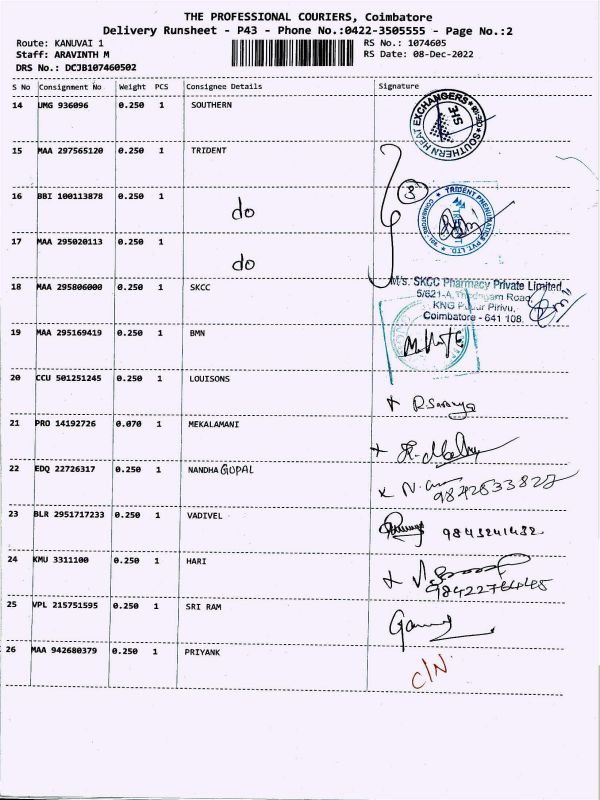 THE PROFESSIONAL COURIERS, Coimbatore
Delivery Runsheet - P43 - Phone No.:0422-3505555 - Page No.:2
Route: KANUVAI 1 RS No.: 1074605
Staff: ARAVINTH M RS Date: 08-Dec-2022
DRS No.: DCJB107460502
S No Consignment No Weight PCS Consignee Details Signature
14 UMG 936096 0.250 1 SOUTHERN
SOUTHERN HEAT EXCHANGERS
SHE
15 MAA 297565120 0.250 1 TRIDENT
16 BBI 100113878 0.250 1 do 3
TRIDENT PNEUMATICS PVT. LTD.
17 MAA 295020113 0.250 1 do
18 MAA 295806000 0.250 1 SKCC
M/s. SKCC Pharmacy Private Limited,
5/621-A, Road,
KNG Pirivu,
Coimbatore - 641 108.
19 MAA 295169419 0.250 1 BMN
20 CCU 501251245 0.250 1 LOUISONS
21 PRO 14192726 0.070 1 MEKALAMANI
22 EDQ 22726317 0.250 1 NANDHA GOPAL
23 BLR 2951717233 0.250 1 VADIVEL 9843241432
24 KMU 3311100 0.250 1 HARI
25 VPL 215751595 0.250 1 SRI RAM
26 MAA 942680379 0.250 1 PRIYANK C/N